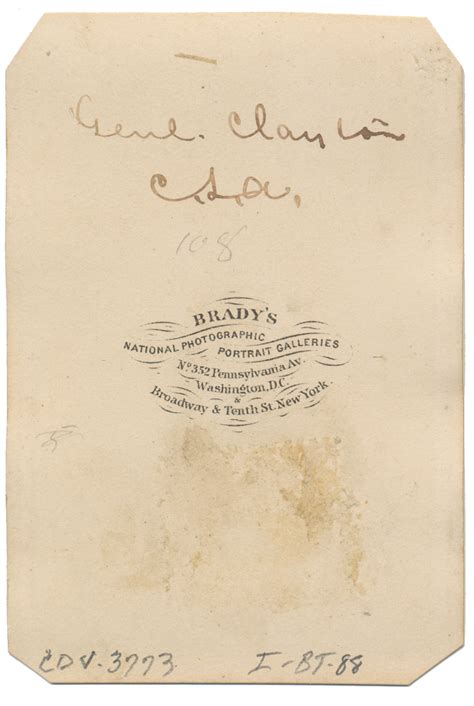 Genl. Clayton
C.S.A.
108
BRADY'S
NATIONAL PHOTOGRAPHIC
PORTRAIT GALLERIES
No. 352 Pennsylvania Av.
Washington, D.C.
&
Broadway & Tenth St. New York.
CDV-3773 I-BT-88